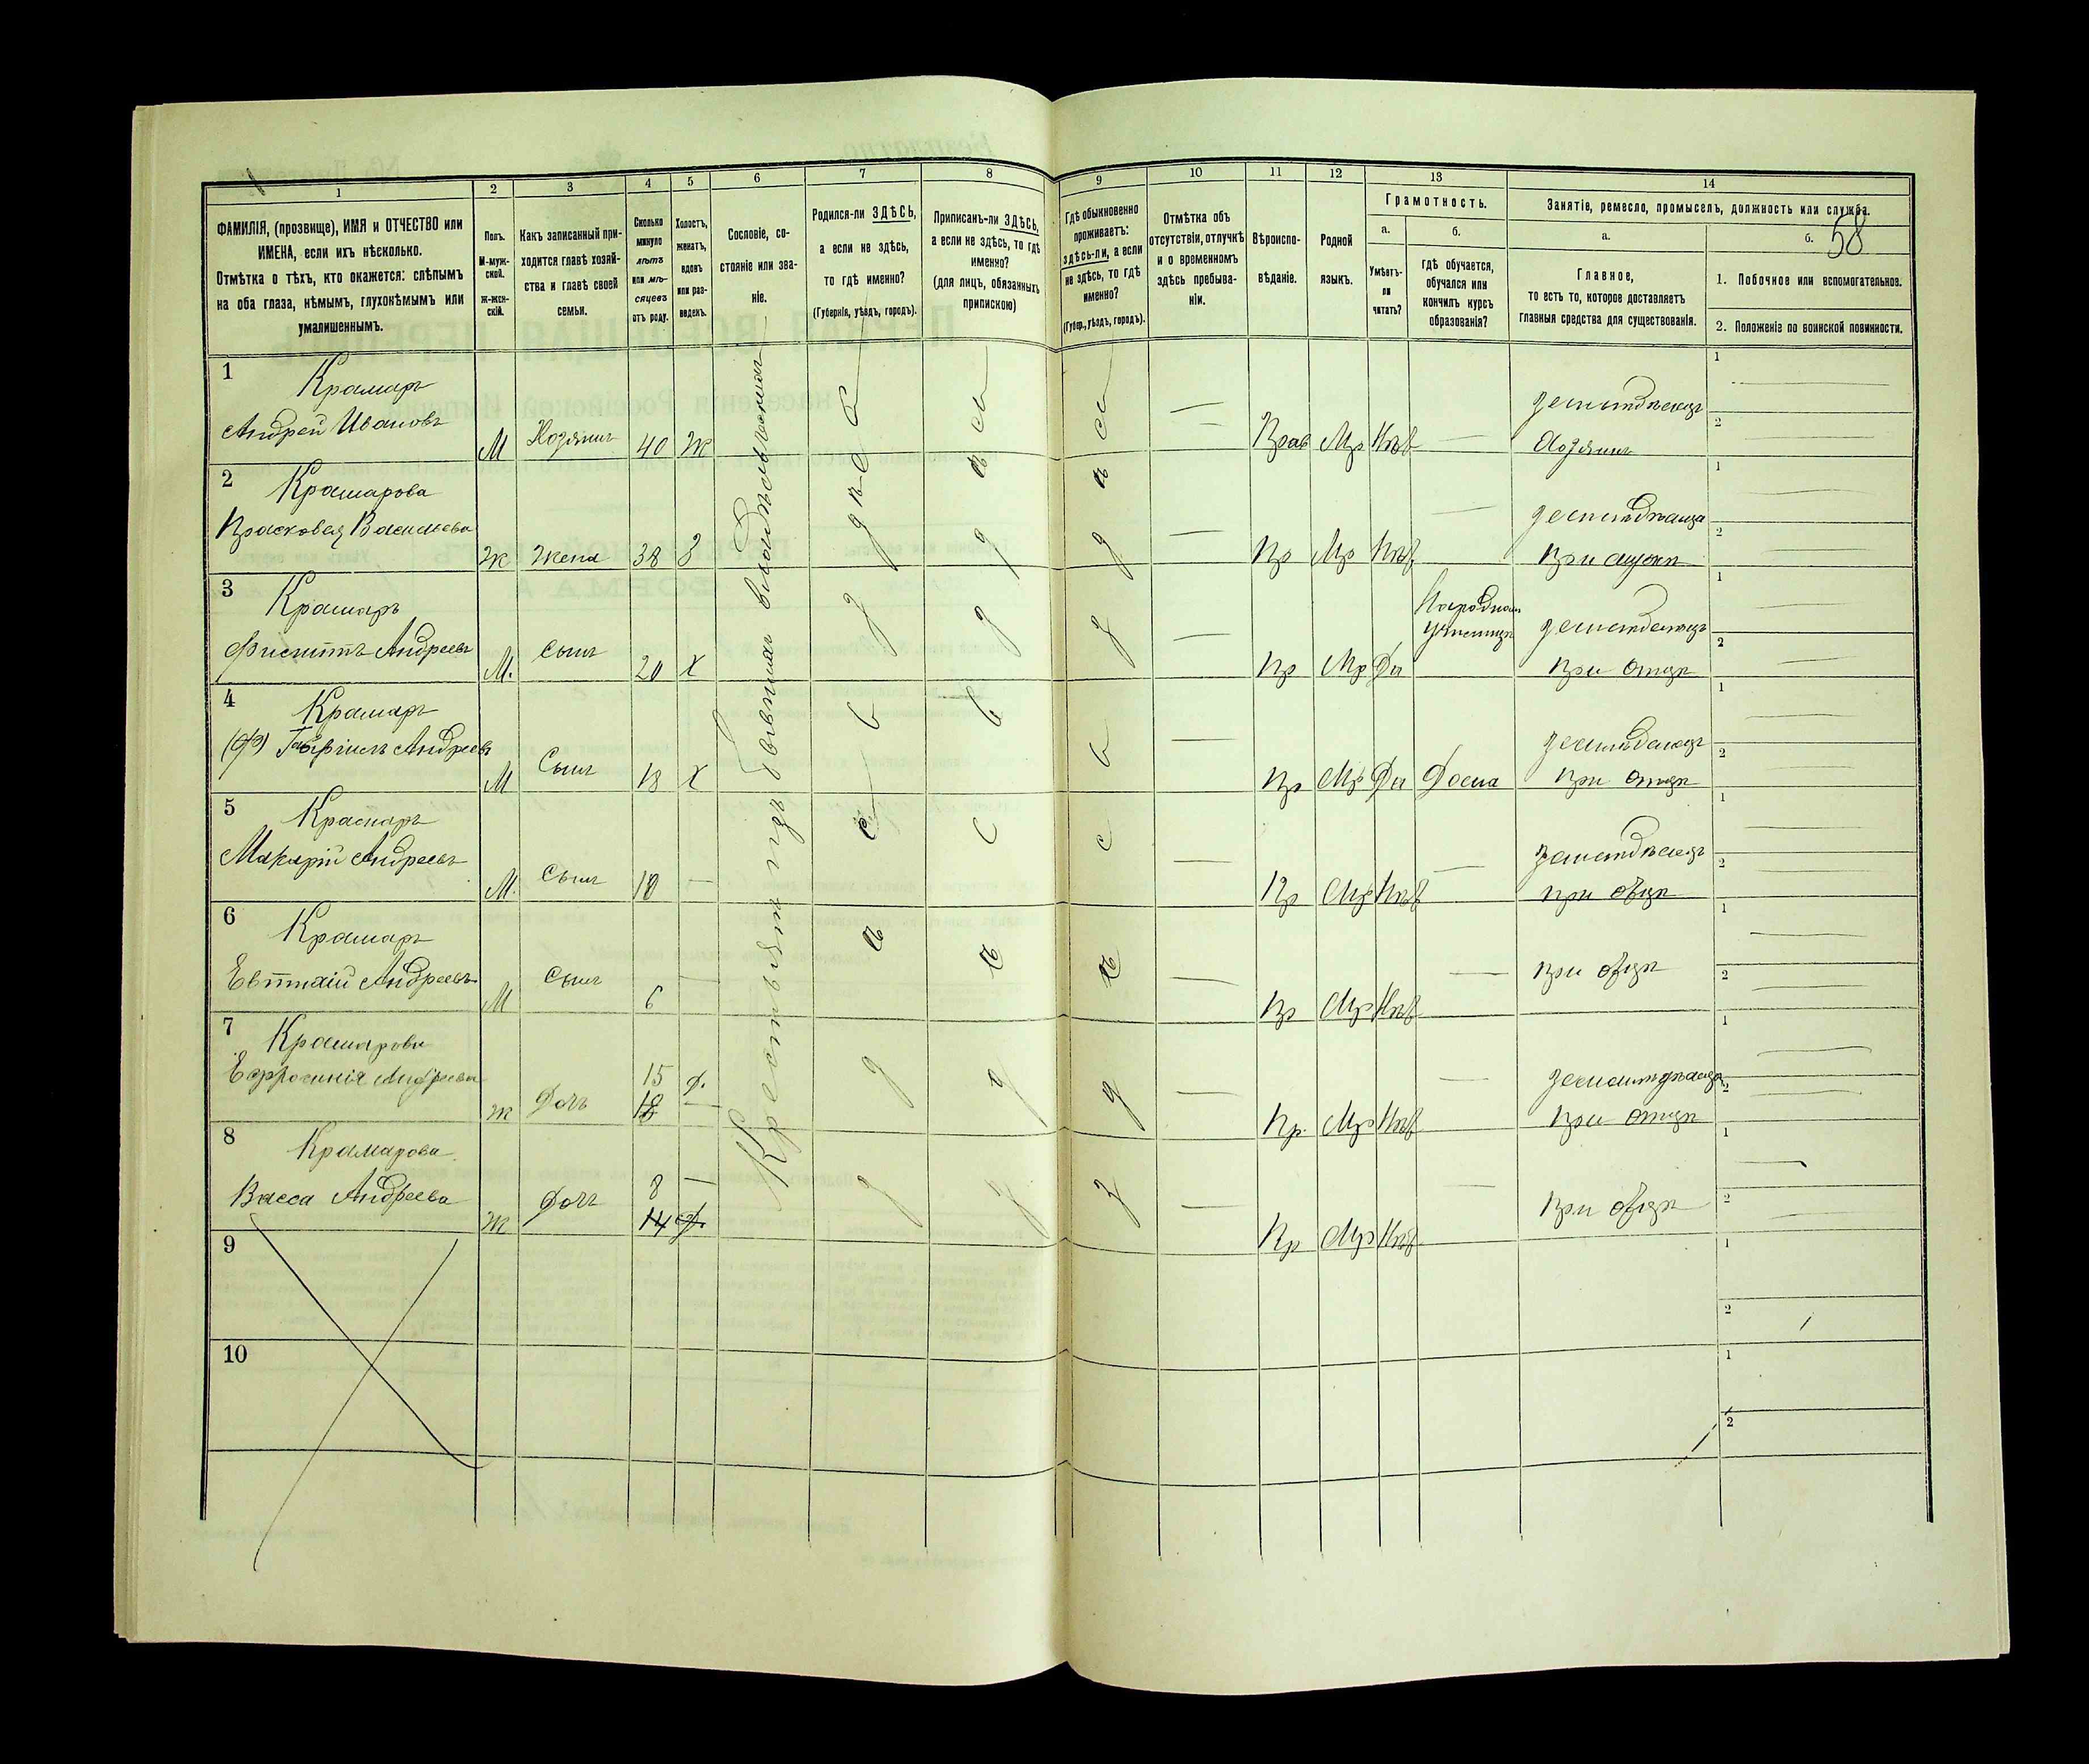 1
2
3
4
5
6
7
8
9
10
11
12
13
14
ФАМИЛІЯ, (прозвище), ИМЯ и ОТЧЕСТВО или
ИМЕНА, если ихъ нѣсколько.
Отмѣтка о тѣхъ, кто окажется: слѣпымъ
на оба глаза, нѣмымъ, глухонѣмымъ или
умалишеннымъ.
Полъ.
М-муж-
ской.
Ж-жен-
скій.
Какъ записанный при-
ходится главѣ хозяй-
ства и главѣ своей
семьи.
Сколько
минуло
лѣтъ
или мѣ-
сяцевъ
отъ роду.
Холостъ,
женатъ,
вдовъ
или раз-
веденъ.
Сословіе, со-
стояніе или зва-
ніе.
Родился-ли ЗДѢСЬ,
а если не здѣсь,
то гдѣ именно?
(Губернія, уѣздъ, городъ).
Приписанъ-ли ЗДѢСЬ,
а если не здѣсь, то гдѣ
именно?
(для лицъ, обязанныхъ
припискою)
Гдѣ обыкновенно
проживаетъ:
здѣсь-ли, а если
не здѣсь, то гдѣ
именно?
(Губер., уѣздъ, городъ).
Отмѣтка объ
отсутствіи, отлучкѣ
и о временномъ
здѣсь пребыва-
ніи.
Вѣроиспо-
вѣданіе.
Родной
языкъ.
Грамотность.
а.
Умѣетъ-
ли
читать?
б.
Гдѣ обучается,
обучался или
кончилъ курсъ
образованія?
Занятіе, ремесло, промыселъ, должность или служба.
а.
Главное,
то есть то, которое доставляетъ
главныя средства для существованія.
б.
58
1. Побочное или вспомогательное.
2. Положеніе по воинской повинности.
Крестьянинъ бывшихъ владѣльческихъ
1
Крамаръ
Андрей Ивановъ
М
Хозяинъ
40
Ж
Прав
Мр
Нѣт
земледѣлецъ
Хозяинъ
1
2
2
Крамарова
Прасковея Васильева
Ж
Жена
38
З
Пр
Мр
Нѣт
при мужѣ
1
2
3
Крамаръ
Филиппъ Андреевъ
М.
Сынъ
20
Х
Пр
Мр
Да
Народномъ
училищѣ
земледелецъ
при отцѣ
1
2
4
Крамаръ
Андреевъ
М
Сынъ
18
Х
Пр
Мр
Да
Дома
земледелецъ
при отцѣ
1
2
5
Крамаръ
Макарій Андреевъ
М.
Сынъ
Пр
Мр
Нѣт
земледѣлецъ
при отцѣ
1
2
6
Крамаръ
Евтихій Андреевъ
М
Сынъ
6
Пр
Мр
Нѣт
при отцѣ
1
2
7
Крамарова
Ефросинія Андреева
Ж
Дочь
15
Д.
Пр.
Мр
Нѣт
при отцѣ
1
2
8
Крамарова
Васса Андреева
Ж
Дочь
8
14
Пр
Мр
Нѣт
при отцѣ
1
2
9
1
2
10
1
2